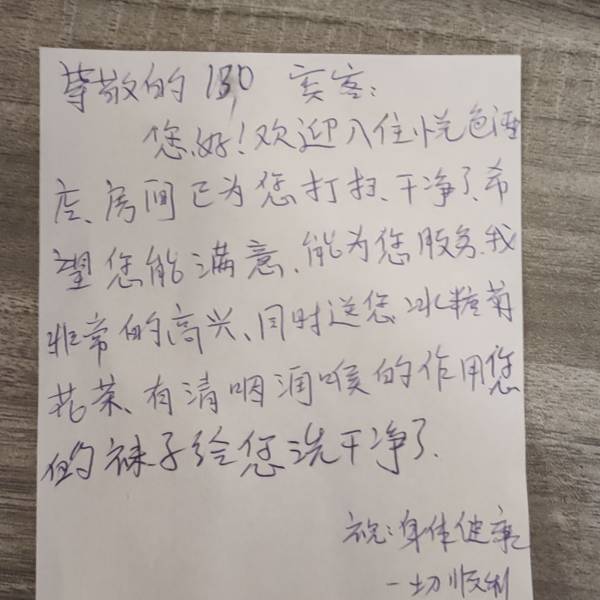 尊敬的130 宾客:
您好!欢迎入住悦色酒
店、房间已为您打扫、干净了、希
望您能满意、能为您服务、我
非常的高兴、同时送您冰糖菊
花茶、有清咽润喉的作用您
的袜子给您洗干净了、
祝:身体健康
一切顺利